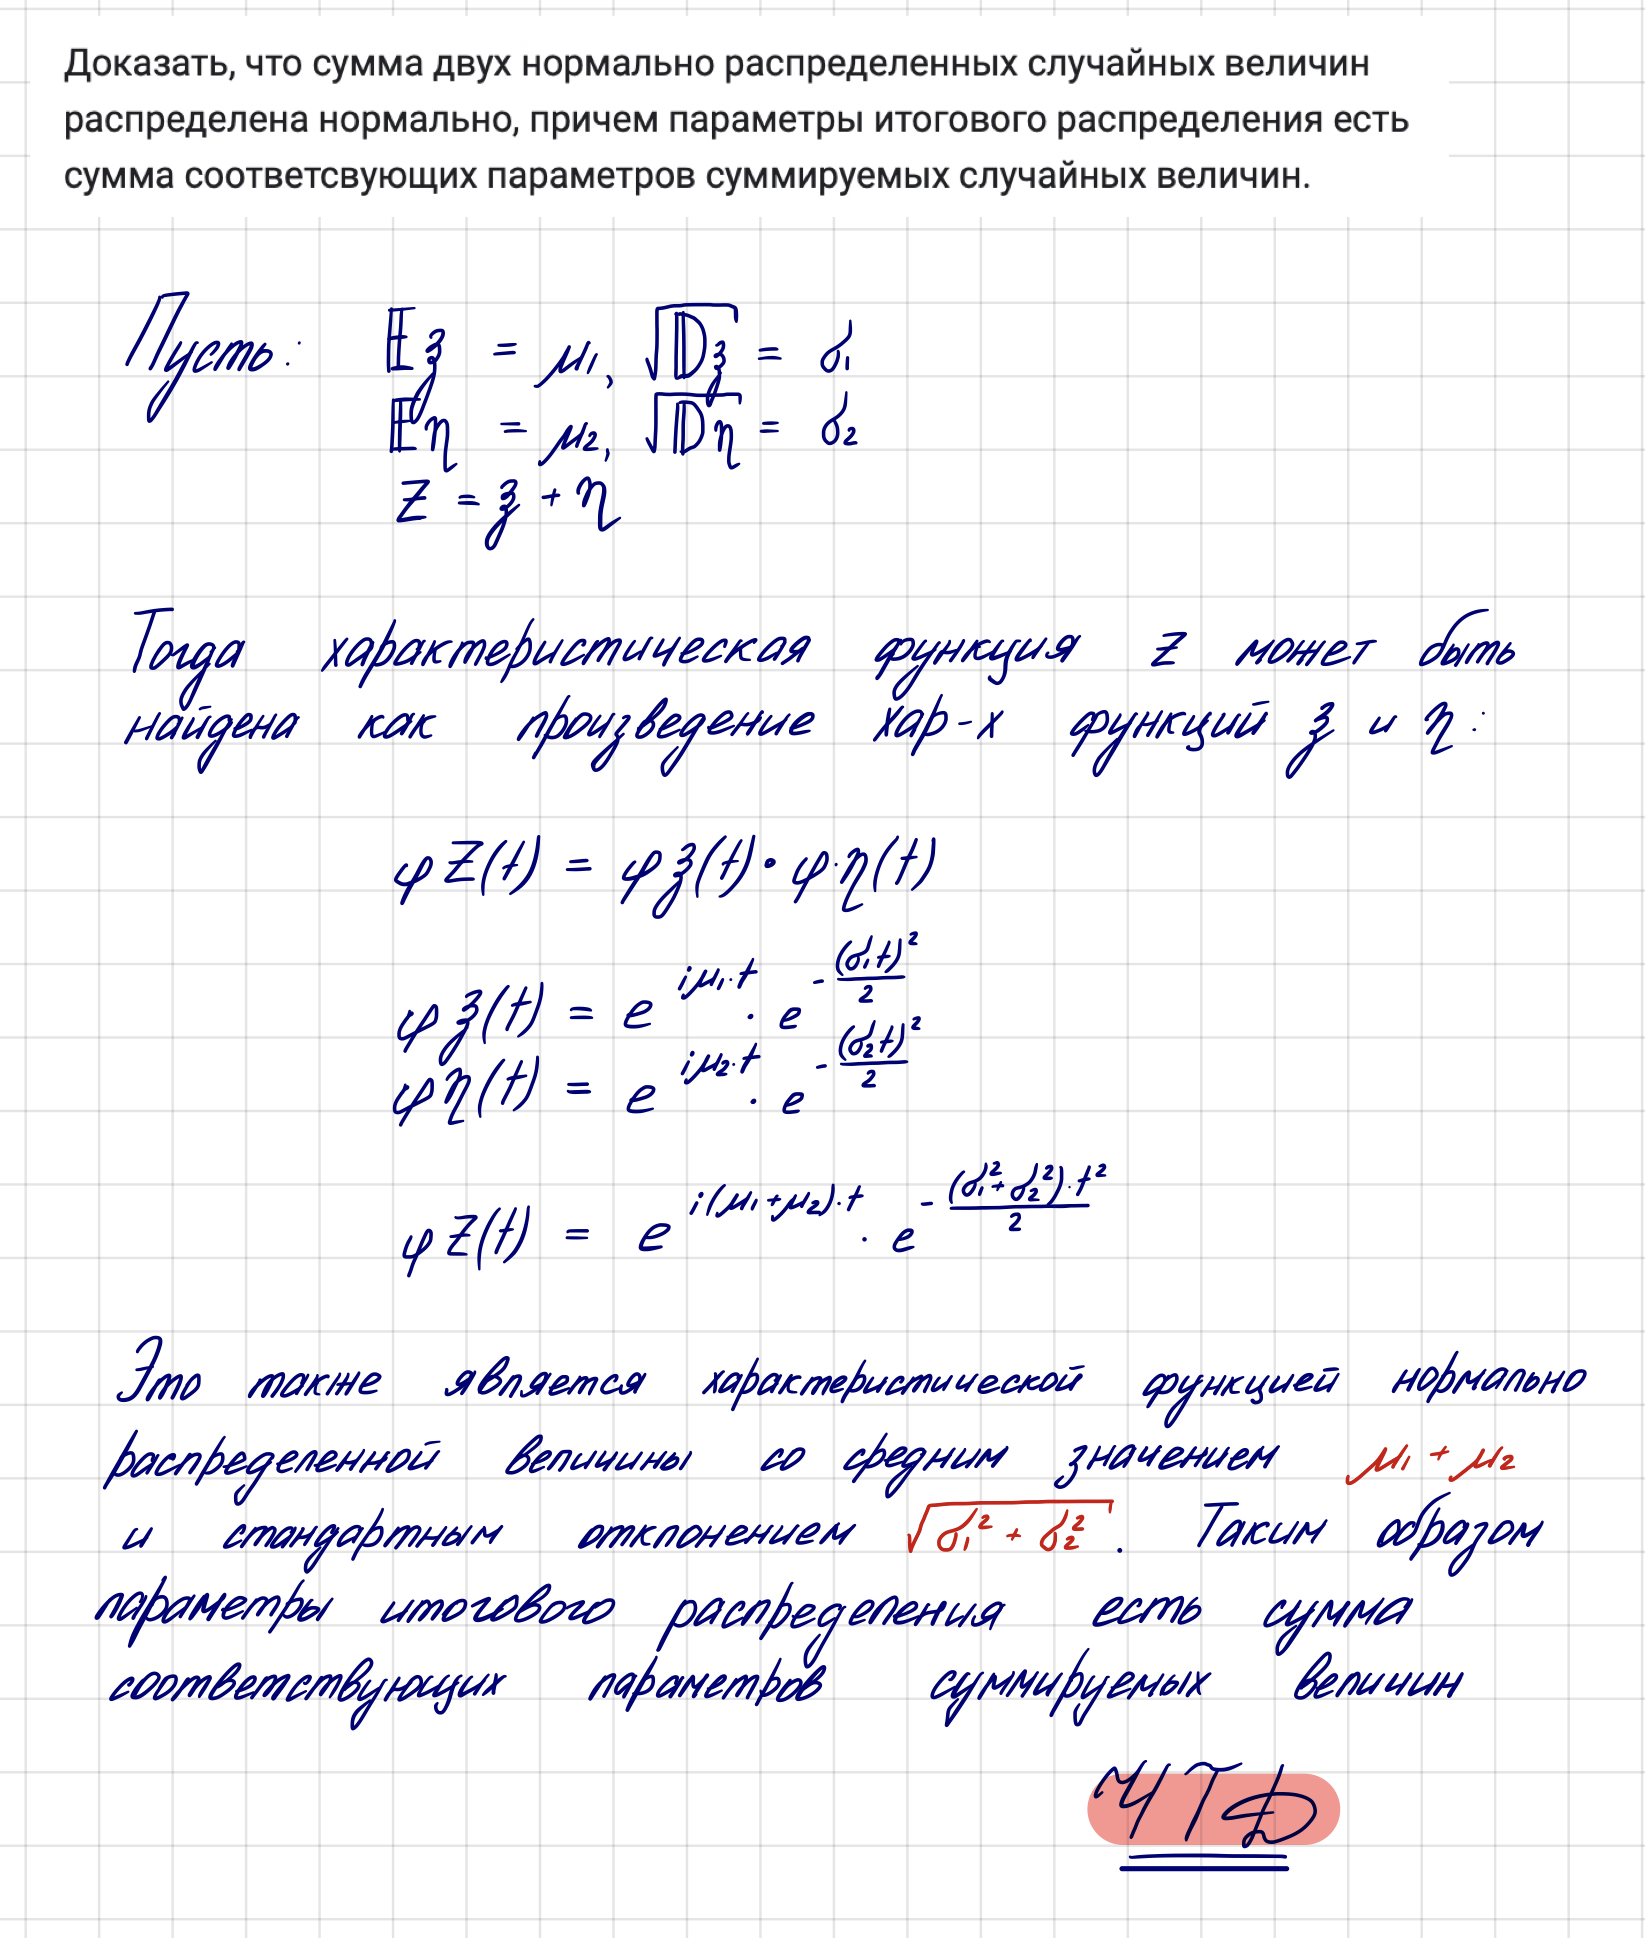 Доказать, что сумма двух нормально распределенных случайных величин
распределена нормально, причем параметры итогового распределения есть
сумма соответсвующих параметров суммируемых случайных величин.
Пусть: 𝔼ξ = μ₁, √𝔻ξ = σ₁
𝔼η = μ₂, √𝔻η = σ₂
Z = ξ + η
Тогда характеристическая функция Z может быть
найдена как произведение хар-х функций ξ и η:
φZ(t) = φξ(t) · φη(t)
φξ(t) = e^{iμ₁·t} · e^{-(σ₁t)²/2}
φη(t) = e^{iμ₂·t} · e^{-(σ₂t)²/2}
φZ(t) = e^{i(μ₁+μ₂)·t} · e^{-(σ₁²+σ₂²)·t²/2}
Это также является характеристической функцией нормально
распределенной величины со средним значением μ₁ + μ₂
и стандартным отклонением √(σ₁² + σ₂²). Таким образом
параметры итогового распределения есть сумма
соответствующих параметров суммируемых величин
ЧТД